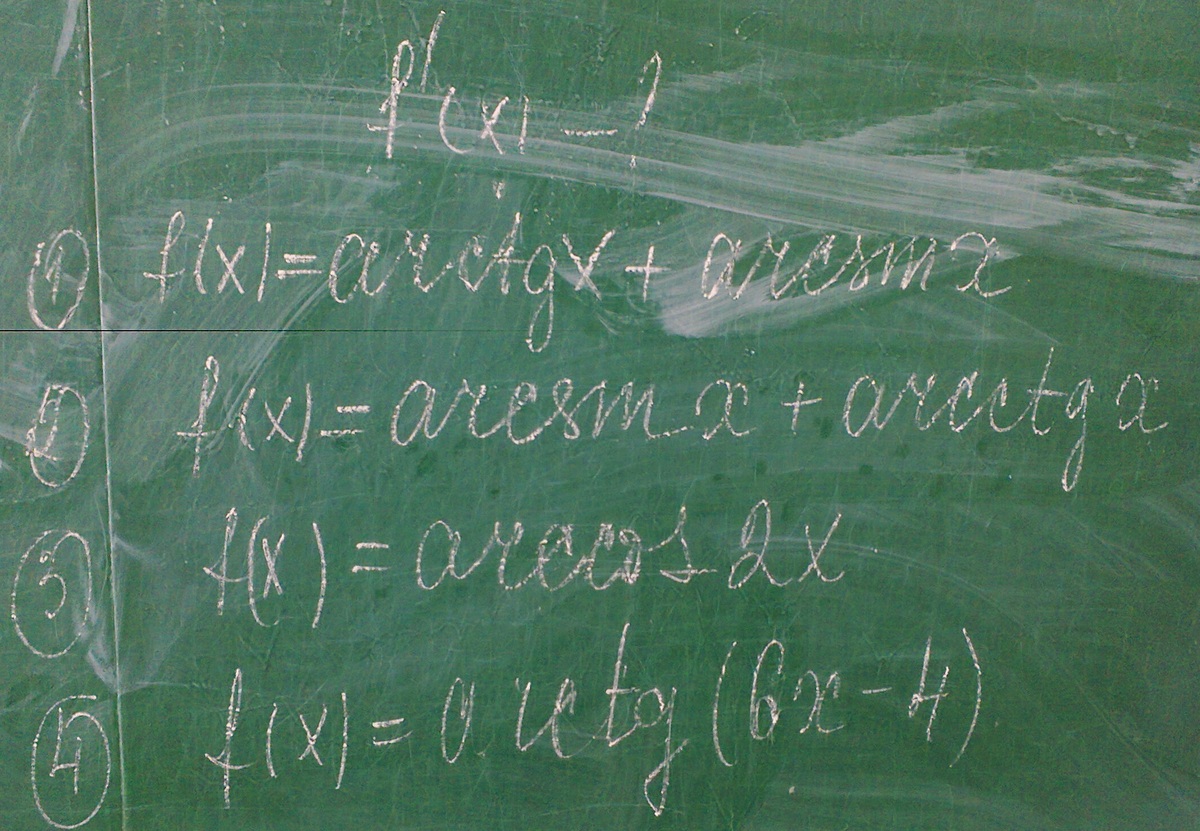 f'(x) - ?
① f(x) = arctgx + arcsin x
② f(x) = arcsin x + arcctg x
③ f(x) = arccos 2x
④ f(x) = arcctg (6x - 4)